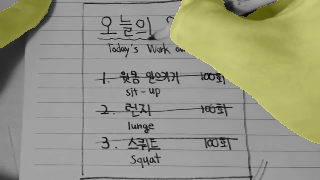 오늘의
Today's Work ou
1. 윗몸 일으키기 100회
sit-up
2. 런지 100회
lunge
3. 스쿼트 100회
Squat